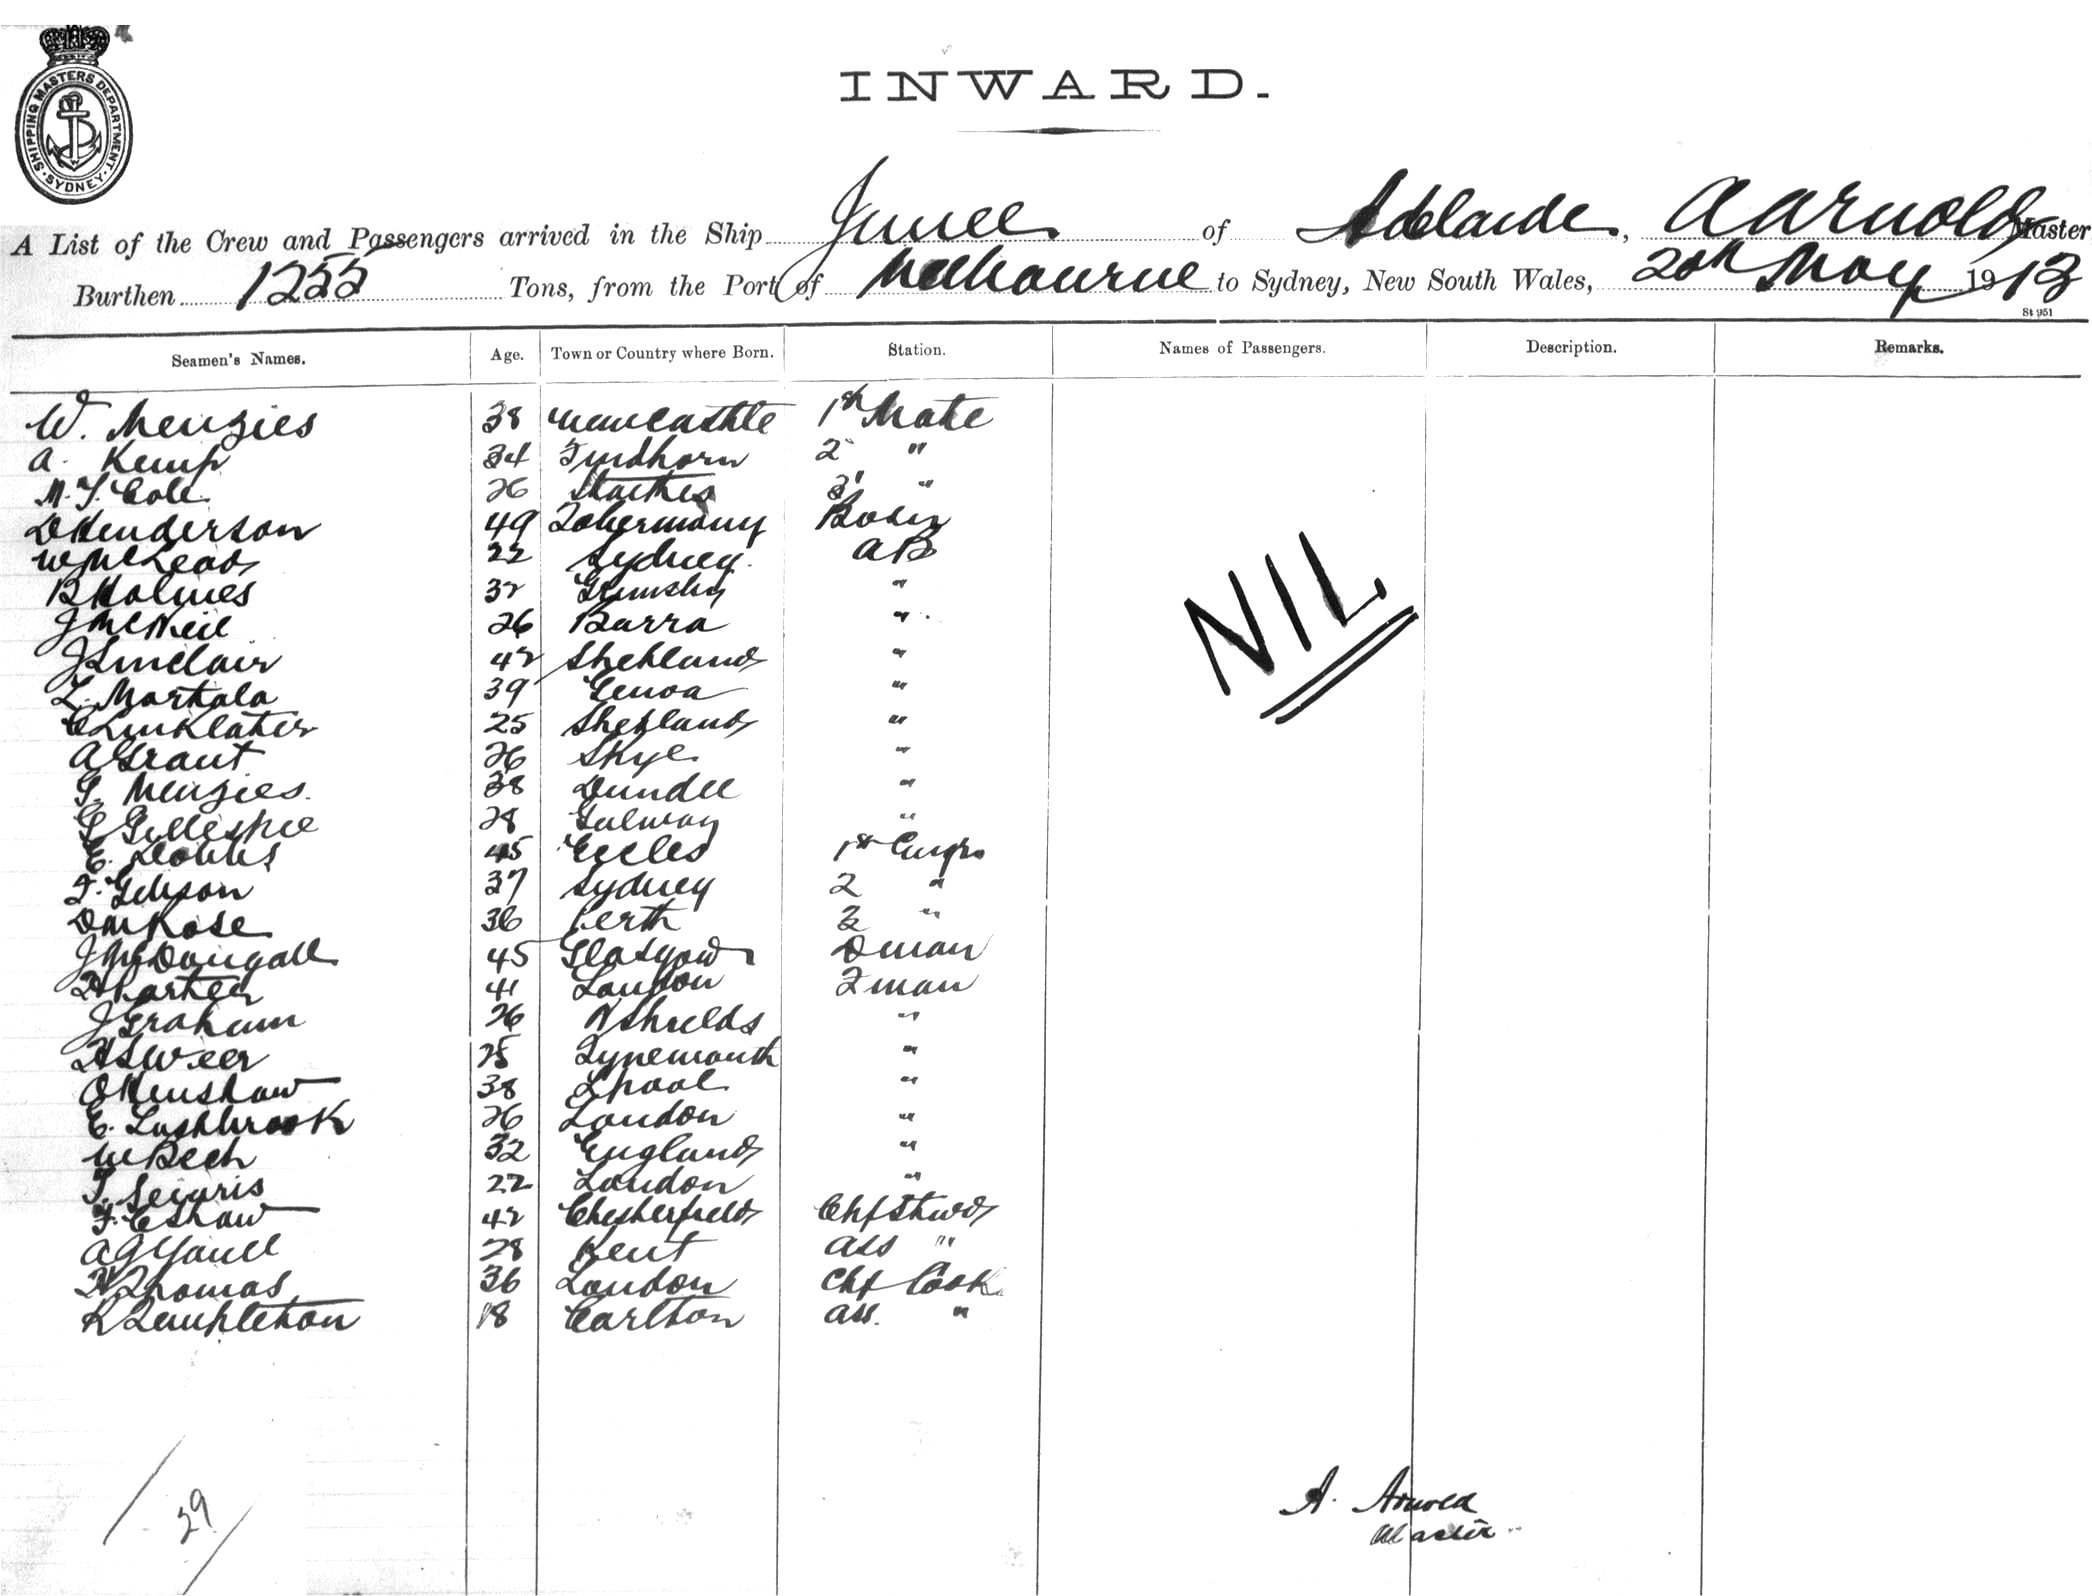 SHIPPING MASTERS DEPARTMENT. SYDNEY.
INWARD.
A List of the Crew and Passengers arrived in the Ship Junee of Adelaide, A Arnold Master
Burthen 1255 Tons, from the Port of Melbourne to Sydney, New South Wales, 20th May 1913
St 951
Seamen's Names. Age. Town or Country where Born. Station. Names of Passengers. Description. Remarks.
W. Menzies 38 Newcastle 1st Mate
A. Kemp 34 Findhorn 2 "
M. J. Cole 26 Staithes 3 "
D Henderson 49 Tobermony Bosn
W McLeod 22 Sydney. AB
B Holmes 32 Grimsby "
J McNeil 26 Barra "
J Sinclair 42 Shetland "
L. Mortola 39 Genoa "
C Linklater 25 Shetland "
A Grant 26 Skye "
G. Menzies. 38 Dundee "
G Gillespie 28 Galway "
E. 45 Eccles 1st Engr
F. Gibson 37 Sydney 2 "
D M Rose 36 Perth 3 "
J McDougall 45 Glasgow Dman
H Parker 41 London Fman
J Graham 26 N Shields "
25 Tynemouth "
O Henshaw 38 Lpool "
E. Lushbrook 26 London "
W Bech 32 England "
22 London "
F. E Shaw 42 Chesterfield Chf Stwd
A G 28 Kent Ass "
H Thomas 36 London Chf Cook
R Templeton 18 Carlton Ass. "
NIL
29
A. Arnold
Master